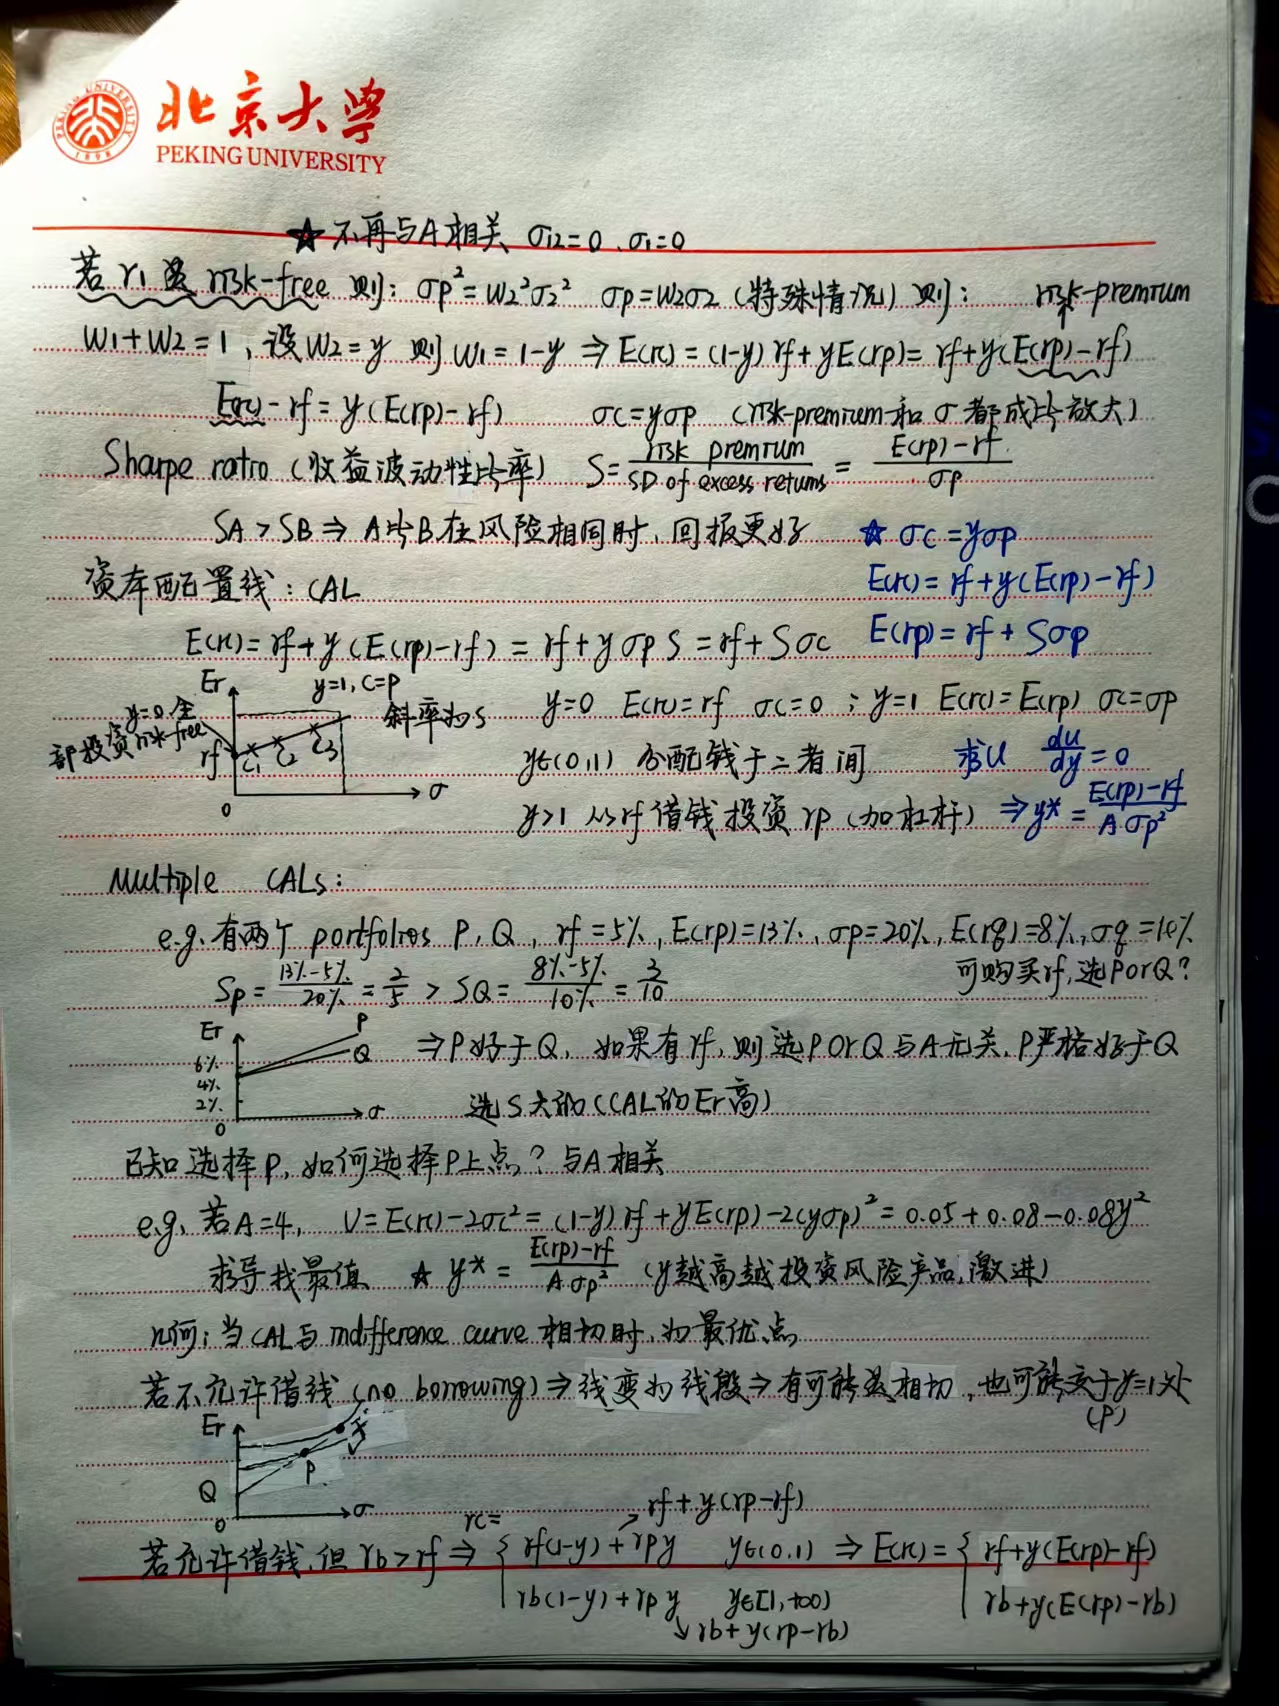 北京大学
PEKING UNIVERSITY
PEKING UNIVERSITY
1898
☆ 不再与A相关 σ12=0、σ1=0
若 r1 是 risk-free 则: σp²=w2²σ2² σp=w2σ2 (特殊情况) 则: risk-premium
w1+w2=1, 设w2=y 则 w1=1-y ⇒ E(rc)=(1-y)rf+yE(rp)=rf+y(E(rp)-rf)
E(rc)-rf=y(E(rp)-rf) σc=yσp (risk-premium和σ都成比放大)
Sharpe ratio (收益波动性比率) S= risk premium / SD of excess returns = E(rp)-rf / σp
SA>SB⇒ A比B在风险相同时、回报更好 ☆ σc=yσp
资本配置线: CAL E(rc)=rf+y(E(rp)-rf)
E(rc)=rf+y(E(rp)-rf)=rf+yσpS=rf+Sσc E(rp)=rf+Sσp
Er y=1,C=P
y=0,全部投资risk-free 斜率为S y=0 E(rc)=rf σc=0 ; y=1 E(rc)=E(rp) σc=σp
rf C1 C2 C3 y∈(0,1) 分配钱于二者间 求U du/dy=0
0 σ y>1 从rf借钱投资rp (加杠杆) ⇒y*= E(rp)-rf / Aσp²
Multiple CALs:
e.g. 有两个 portfolios P, Q, rf=5%, E(rp)=13%、σp=20%, E(rq)=8%,σq=10%
可购买rf,选PorQ?
Sp= 13%-5% / 20% = 2/5 > SQ= 8%-5% / 10% = 3/10
Er P
Q
6% 4% 2% 0 σ
⇒P好于Q, 如果有rf,则选PorQ与A无关,P严格好于Q
选S大的(CAL的Er高)
已知选择P,如何选择P上点? 与A相关
e.g. 若A=4, U=E(rc)-2σc²=(1-y)rf+yE(rp)-2(yσp)²=0.05+0.08-0.08y²
求导找最值 ☆ y*= E(rp)-rf / Aσp² (y越高越投资风险产品,激进)
几何: 当CAL与indifference curve相切时、为最优点
若不允许借钱(no borrowing)⇒线变为线段⇒有可能相切,也可能交于y=1处
(P)
Er
P
Q
0 σ
rc= rf+y(rp-rf)
若允许借钱,但rb>rf ⇒ { rf(1-y)+rpy y∈(0,1) ⇒ E(rc)={ rf+y(E(rp)-rf)
rb(1-y)+rpy y∈[1,+∞) rb+y(E(rp)-rb)
↘rb+y(rp-rb)